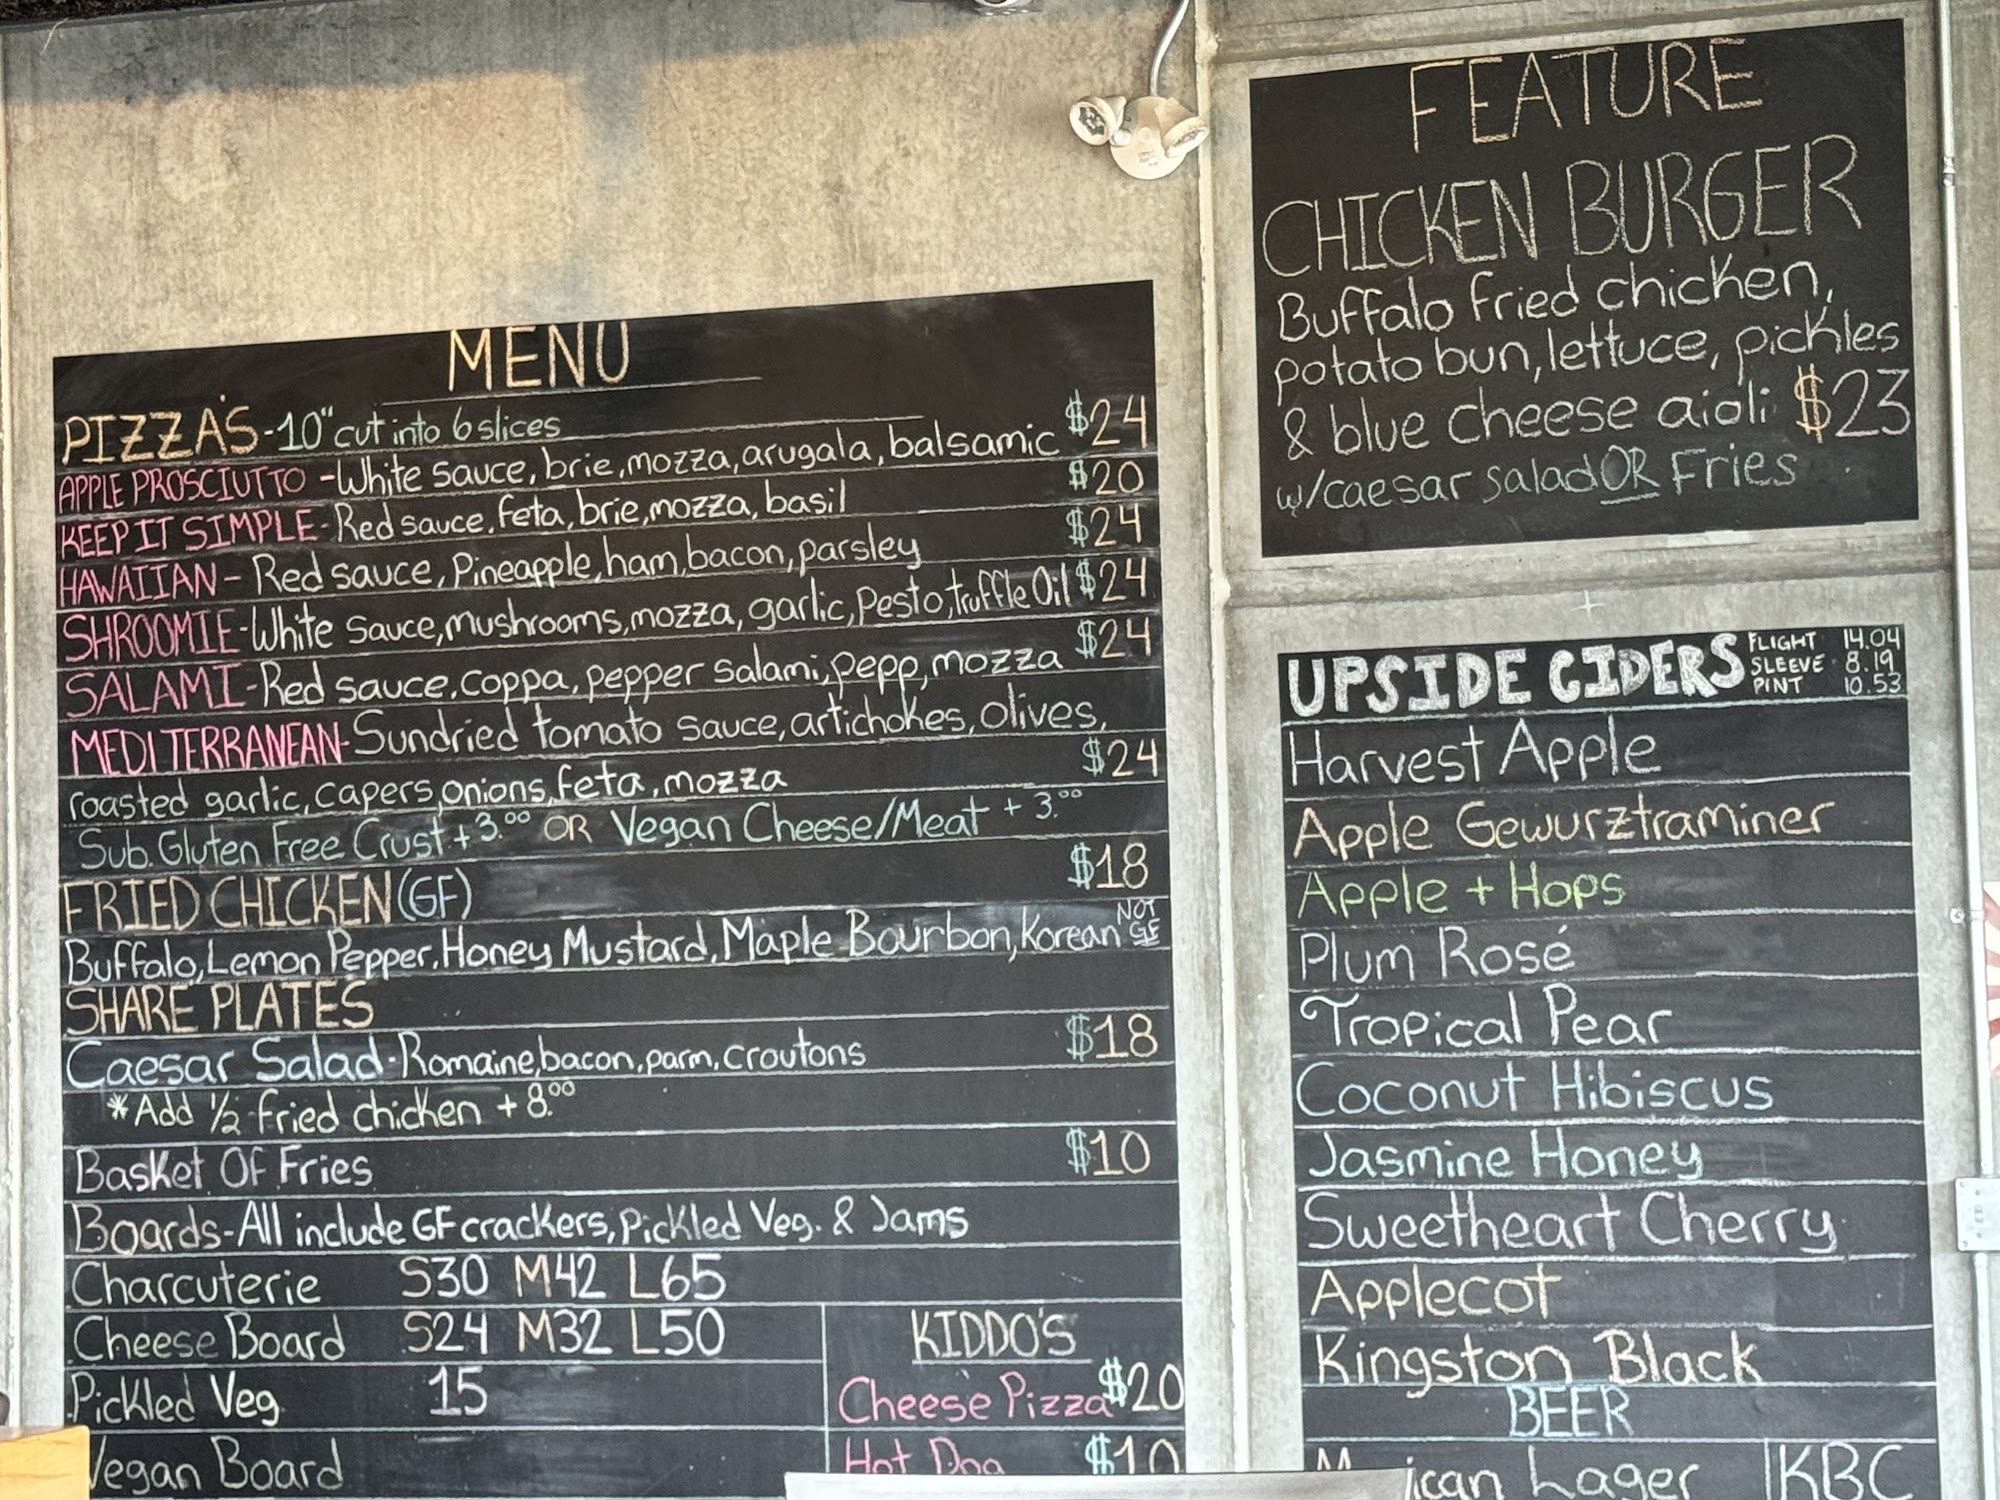 MENU
PIZZA'S-10" cut into 6 slices
APPLE PROSCIUTTO -White sauce, brie, mozza, arugala, balsamic $24
KEEP IT SIMPLE- Red sauce, feta, brie, mozza, basil $20
HAWAIIAN- Red sauce, Pineapple, ham, bacon, parsley $24
SHROOMIE-White sauce, mushrooms, mozza, garlic, Pesto, truffle Oil $24
SALAMI-Red sauce, coppa, pepper salami, pepp, mozza $24
MEDITERRANEAN-Sundried tomato sauce, artichokes, olives,
roasted garlic, capers, onions, feta, mozza $24
Sub. Gluten Free Crust +3.00 OR Vegan Cheese/Meat +3.00
FRIED CHICKEN (GF) $18
Buffalo, Lemon Pepper, Honey Mustard, Maple Bourbon, Korean NOT GF
SHARE PLATES
Caesar Salad-Romaine, bacon, parm, croutons $18
*Add 1/2 fried chicken +8.00
Basket Of Fries $10
Boards-All include GF crackers, Pickled Veg. & Jams
Charcuterie S30 M42 L65
Cheese Board S24 M32 L50
Pickled Veg 15
Vegan Board
KIDDO'S
Cheese Pizza $20
Hot Dog $10
FEATURE
CHICKEN BURGER
Buffalo fried chicken,
potato bun, lettuce, pickles
& blue cheese aioli $23
w/caesar salad OR Fries
UPSIDE CIDERS
FLIGHT 14.04
SLEEVE 8.19
PINT 10.53
Harvest Apple
Apple Gewurztraminer
Apple + Hops
Plum Rosé
Tropical Pear
Coconut Hibiscus
Jasmine Honey
Sweetheart Cherry
Applecot
Kingston Black
BEER
Lager KBC